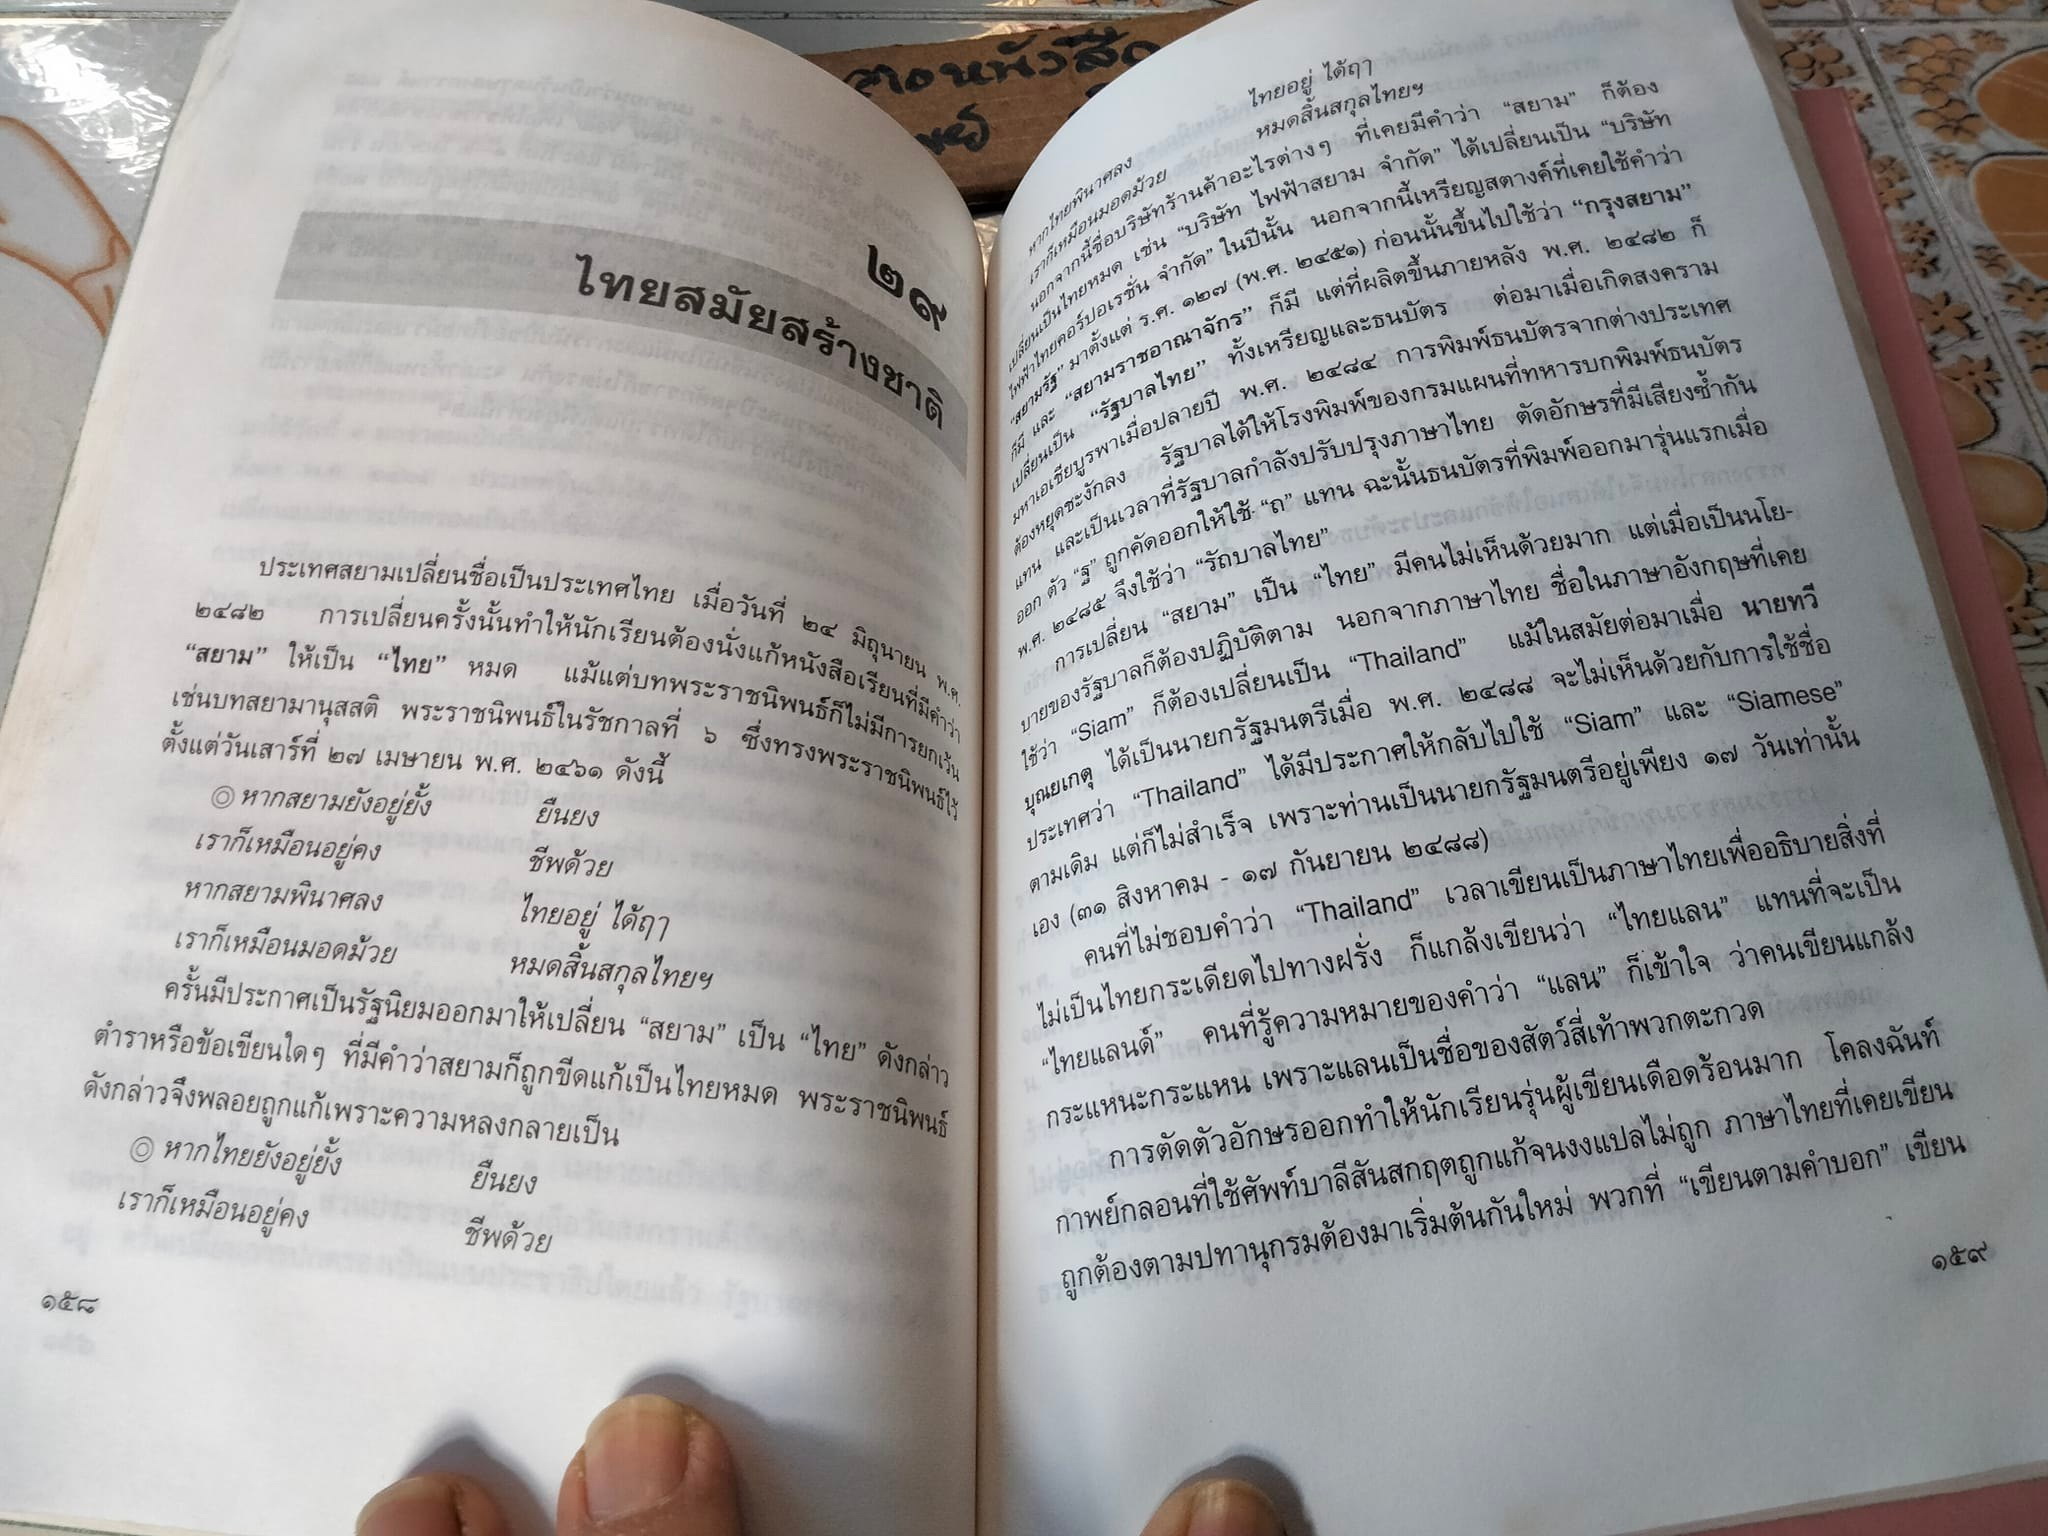 ๒๙
ไทยสมัยสร้างชาติ
ประเทศสยามเปลี่ยนชื่อเป็นประเทศไทย เมื่อวันที่ ๒๔ มิถุนายน พ.ศ.
๒๔๘๒ การเปลี่ยนครั้งนั้นทำให้นักเรียนต้องนั่งแก้หนังสือเรียนที่มีคำว่า
“สยาม” ให้เป็น “ไทย” หมด แม้แต่บทพระราชนิพนธ์ก็ไม่มีการยกเว้น
เช่นบทสยามานุสสติ พระราชนิพนธ์ในรัชกาลที่ ๖ ซึ่งทรงพระราชนิพนธ์ไว้
ตั้งแต่วันเสาร์ที่ ๒๗ เมษายน พ.ศ. ๒๔๖๑ ดังนี้
◎ หากสยามยังอยู่ยั้ง ยืนยง
เราก็เหมือนอยู่คง ชีพด้วย
หากสยามพินาศลง ไทยอยู่ ได้ฤๅ
เราก็เหมือนมอดม้วย หมดสิ้นสกุลไทยฯ
ครั้นมีประกาศเป็นรัฐนิยมออกมาให้เปลี่ยน “สยาม” เป็น “ไทย” ดังกล่าว
ตำราหรือข้อเขียนใดๆ ที่มีคำว่าสยามก็ถูกขีดแก้เป็นไทยหมด พระราชนิพนธ์
ดังกล่าวจึงพลอยถูกแก้เพราะความหลงกลายเป็น
◎ หากไทยยังอยู่ยั้ง ยืนยง
เราก็เหมือนอยู่คง ชีพด้วย
๑๕๘
หากไทยพินาศลง ไทยอยู่ ได้ฤๅ
เราก็เหมือนมอดม้วย หมดสิ้นสกุลไทยฯ
นอกจากนี้ชื่อบริษัทร้านค้าอะไรต่างๆ ที่เคยมีคำว่า “สยาม” ก็ต้อง
เปลี่ยนเป็นไทยหมด เช่น “บริษัท ไฟฟ้าสยาม จำกัด” ได้เปลี่ยนเป็น “บริษัท
ไฟฟ้าไทยคอร์ปอเรชั่น จำกัด” ในปีนั้น นอกจากนี้เหรียญสตางค์ที่เคยใช้คำว่า
“สยามรัฐ” มาตั้งแต่ ร.ศ. ๑๒๗ (พ.ศ. ๒๔๕๑) ก่อนนั้นขึ้นไปใช้ว่า “กรุงสยาม”
ก็มี และ “สยามราชอาณาจักร” ก็มี แต่ที่ผลิตขึ้นภายหลัง พ.ศ. ๒๔๘๒ ก็
เปลี่ยนเป็น “รัฐบาลไทย” ทั้งเหรียญและธนบัตร ต่อมาเมื่อเกิดสงคราม
มหาเอเชียบูรพาเมื่อปลายปี พ.ศ. ๒๔๘๔ การพิมพ์ธนบัตรจากต่างประเทศ
ต้องหยุดชะงักลง รัฐบาลได้ให้โรงพิมพ์ของกรมแผนที่ทหารบกพิมพ์ธนบัตร
แทน และเป็นเวลาที่รัฐบาลกำลังปรับปรุงภาษาไทย ตัดอักษรที่มีเสียงซ้ำกัน
ออก ตัว “ฐ” ถูกคัดออกให้ใช้ “ถ” แทน ฉะนั้นธนบัตรที่พิมพ์ออกมารุ่นแรกเมื่อ
พ.ศ. ๒๔๘๕ จึงใช้ว่า “รัถบาลไทย”
การเปลี่ยน “สยาม” เป็น “ไทย” มีคนไม่เห็นด้วยมาก แต่เมื่อเป็นนโย-
บายของรัฐบาลก็ต้องปฏิบัติตาม นอกจากภาษาไทย ชื่อในภาษาอังกฤษที่เคย
ใช้ว่า “Siam” ก็ต้องเปลี่ยนเป็น “Thailand” แม้ในสมัยต่อมาเมื่อ นายทวี
บุณยเกตุ ได้เป็นนายกรัฐมนตรีเมื่อ พ.ศ. ๒๔๘๘ จะไม่เห็นด้วยกับการใช้ชื่อ
ประเทศว่า “Thailand” ได้มีประกาศให้กลับไปใช้ “Siam” และ “Siamese”
ตามเดิม แต่ก็ไม่สำเร็จ เพราะท่านเป็นนายกรัฐมนตรีอยู่เพียง ๑๗ วันเท่านั้น
เอง (๓๑ สิงหาคม - ๑๗ กันยายน ๒๔๘๘)
คนที่ไม่ชอบคำว่า “Thailand” เวลาเขียนเป็นภาษาไทยเพื่ออธิบายสิ่งที่
ไม่เป็นไทยกระเดียดไปทางฝรั่ง ก็แกล้งเขียนว่า “ไทยแลน” แทนที่จะเป็น
“ไทยแลนด์” คนที่รู้ความหมายของคำว่า “แลน” ก็เข้าใจ ว่าคนเขียนแกล้ง
กระแหนะกระแหน เพราะแลนเป็นชื่อของสัตว์สี่เท้าพวกตะกวด
การตัดตัวอักษรออกทำให้นักเรียนรุ่นผู้เขียนเดือดร้อนมาก โคลงฉันท์
กาพย์กลอนที่ใช้ศัพท์บาลีสันสกฤตถูกแก้จนงงแปลไม่ถูก ภาษาไทยที่เคยเขียน
ถูกต้องตามปทานุกรมต้องมาเริ่มต้นกันใหม่ พวกที่ “เขียนตามคำบอก” เขียน
๑๕๙